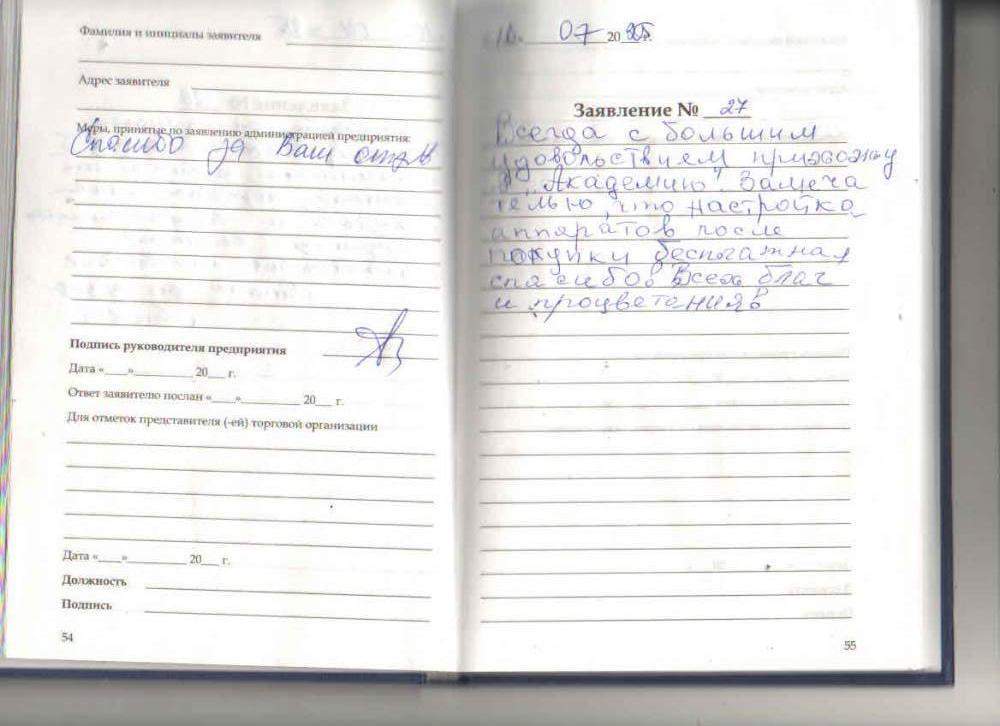 Фамилия и инициалы заявителя
Адрес заявителя
Меры, принятые по заявлению администрацией предприятия:
Спасибо за Ваш отзыв
Подпись руководителя предприятия
Дата «____»__________ 20___ г.
Ответ заявителю послан «____»__________ 20___ г.
Для отметок представителя (-ей) торговой организации
Дата «____»__________ 20___ г.
Должность
Подпись
54
10. 07 20 г.
Заявление № 27
Всегда с большим
удовольствием прихожу
в "Академию". Замеча
тельно, что настройка
аппаратов после
покупки бесплатная
спасибо. Всех благ
и процветания
55